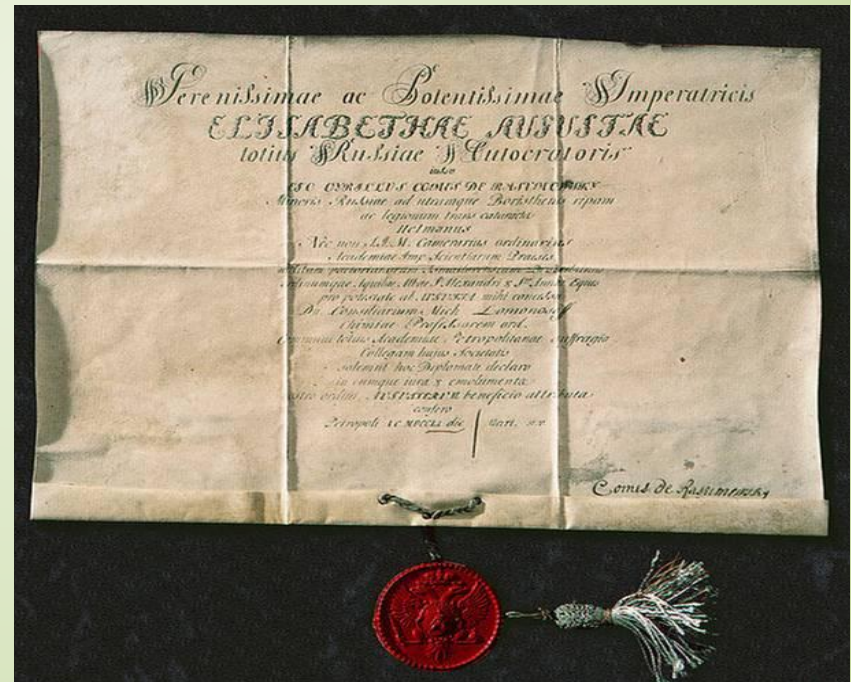 Serenissimae ac Potentissimae Imperatricis
ELISABETHAE AUGUSTAE
totius Russiae Autocratoris
iussu
EGO CYRILLUS COMES DE RASUMOWSKY
Minoris Russiae ad utramque Boristhenis ripam
ac legionum trans cataracta
Hetmanus
Nec non S.I.M. Camerarius ordinarius
Academiae Imp. Scientiarum Praeses
ordinumque Aquilae Albae S. Alexandri & Stae Annae Eques
pro potestate ab AUGUSTA mihi concessa
Dn. Consiliarium Mich Lomonosoff
Chimiae Professorem ord.
Communi totius Academiae Petropolitanae suffragio
Collegam hujus Societatis
solemni hoc Diplomate declaro
in eumque iura & emolumenta
ordini AUGUSTAE beneficio attributa
confero
Petropoli die
Comes de Rasumowsky